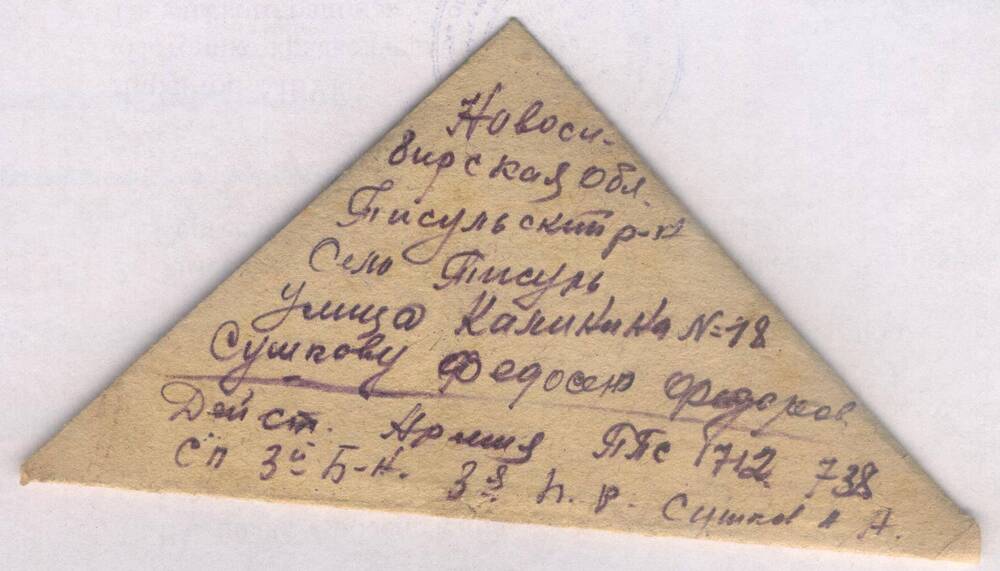 Новоси-
бирская обл.
Тисульский р-н
Село Тисуль
улица Калинина №18
Сушкову Федосею Федоров
Дейст. Армия ППс 1712 738
СП 3й Б-н. 3я п. р. Сушков А.